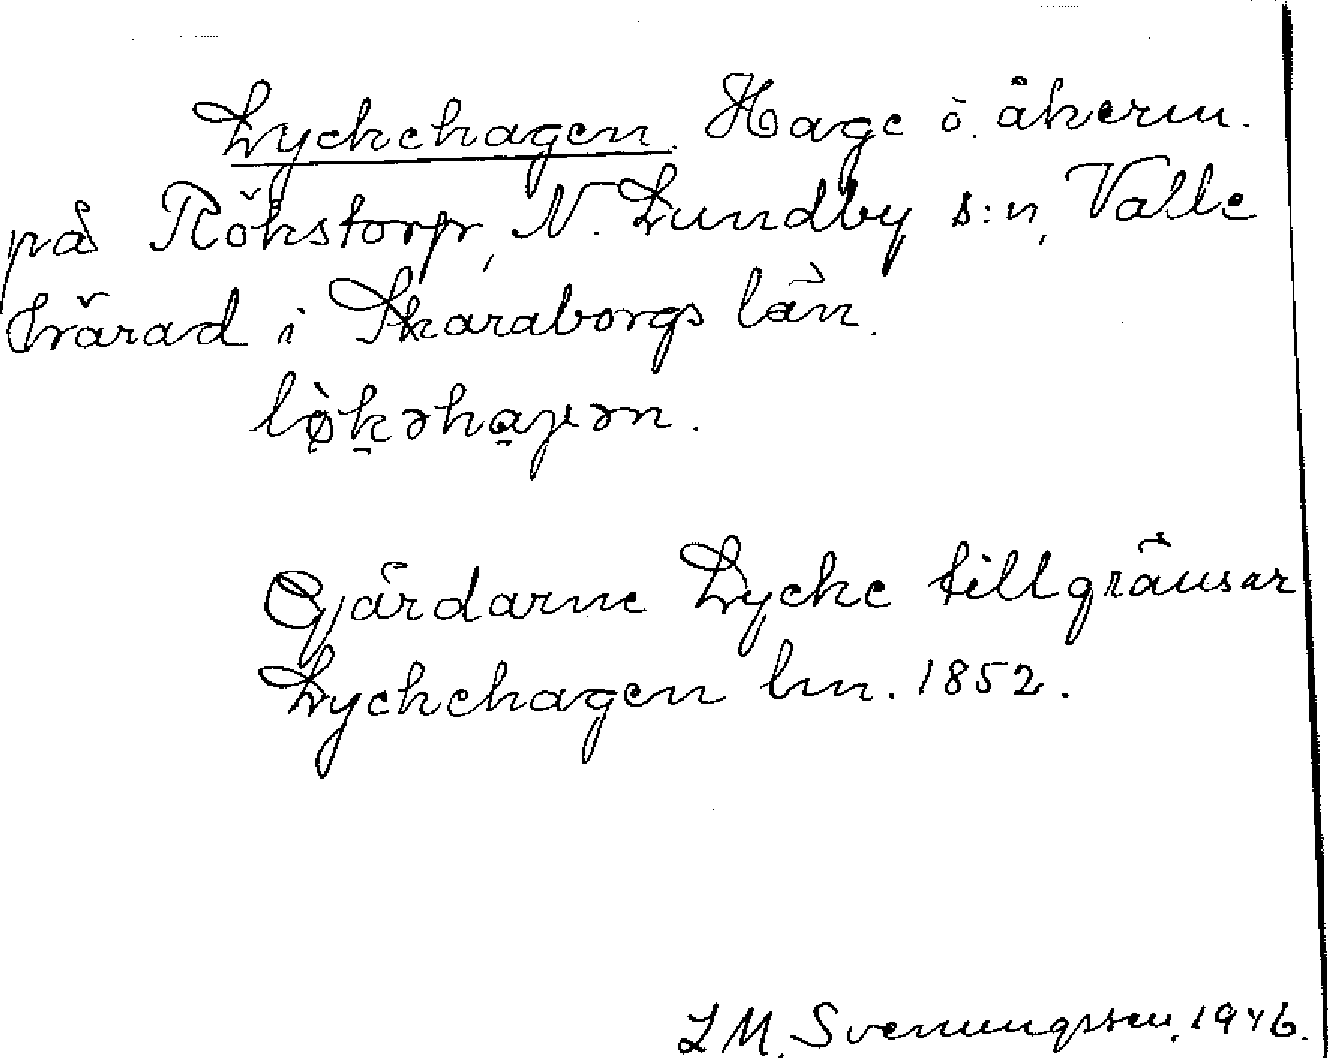 Lyckehagen. Hage ö. åkerm.
på Rökstorp, N. Lundby s:n, Valle
härad i Skaraborgs län.
lø̀kəhaɡən.
Gjärdarne Lycke tillgränsar
Lyckehagen hm. 1852.
L M. Svenungsson. 1946.